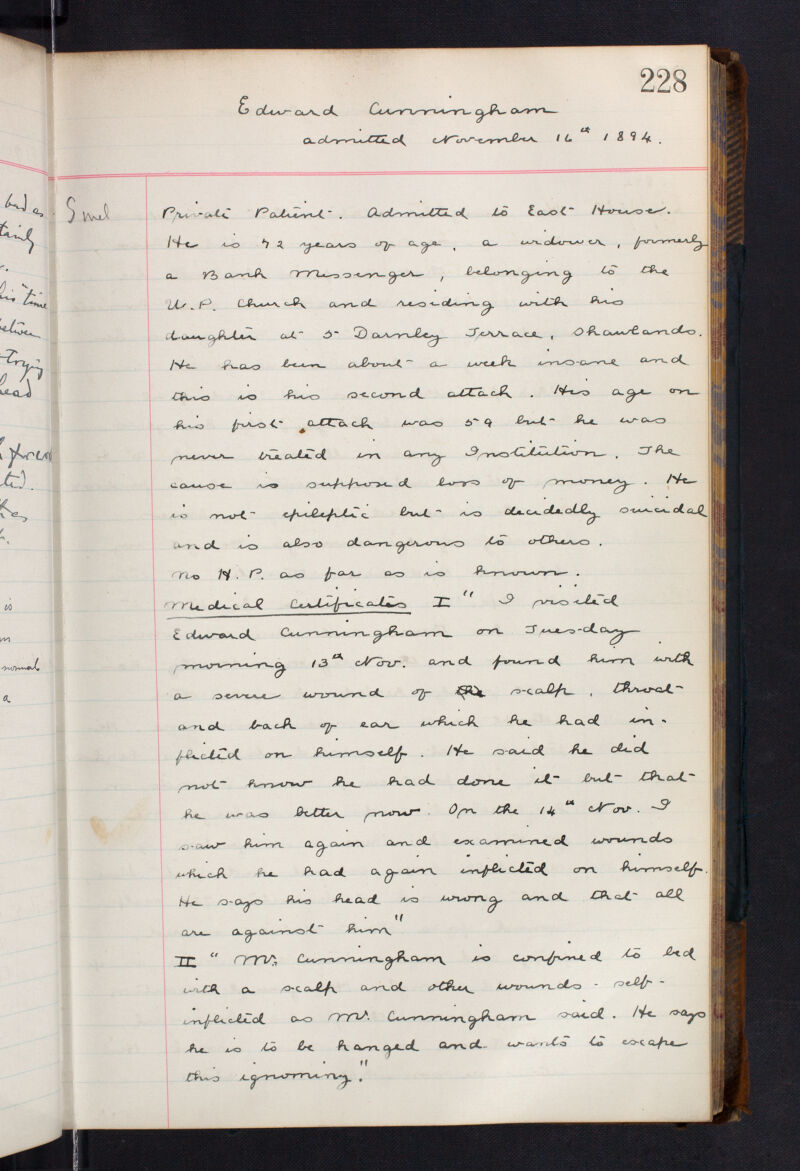 228
Edward Cunningham
admitted November 16th 1894.
bed as
tainly
his time
between
trying
head
ted.
is
normal
a
Private Patient. Admitted to East House.
He is 72 years of age, a widower, formerly
a Bank Messenger, belonging to the
U.P. Church and residing with his
daughter at 5 Darnley Terrace, Shawlands.
He has been about a week insane and
this is his second attack. His age on
his first attack was 59 but he was
never treated in any Institution. The
cause is supposed loss of money. He
is not epileptic but is decidedly suicidal
and is also dangerous to others.
No H.P. as far as is known.
Medical Certificates I " I visited
Edward Cunningham on Tuesday
morning 13th Nov. and found him with
a severe wound of scalp, throat
and back of ear which he had in-
flicted on himself. He said he did
not know he had done it but that
he was better now. On the 14th Nov. I
saw him again and examined wounds
which he had again inflicted on himself.
He says his head is wrong and that all
are against him"
II " Mr. Cunningham is confined to bed
with a scalp and other wounds - self-
inflicted as Mr. Cunningham said. He says
he is to be hanged and wants to escape
this ignominy."